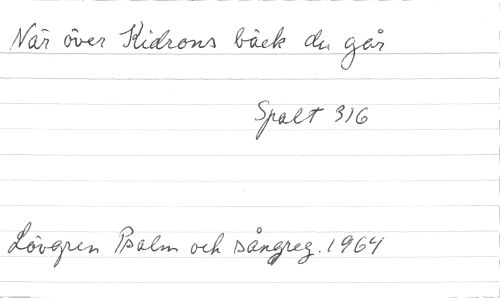 När över Kidrons bäck du går
Spalt 316
Lövgren Psalm och sångreg. 1964